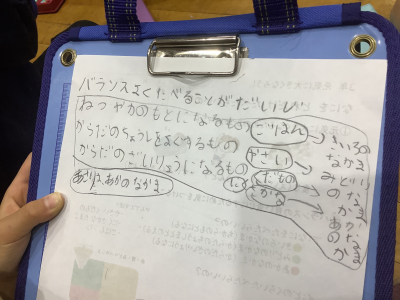 バランスよくたべることがだいじ
ねつやカのもとになるもの
からだのちょうしをよくするもの
からだのざいりょうになるもの
あさりは、あかのなかま
ごはん→きいろのなかま
やさい→みどりのなかま
くだもの→
さかな→あかのなかま